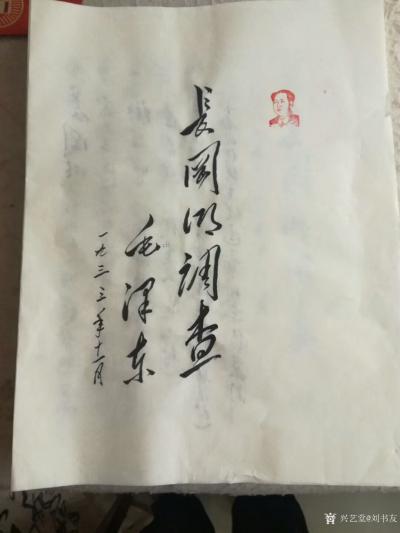 长冈乡调查
毛泽东
一九三三年十一月
兴艺堂@刘书友